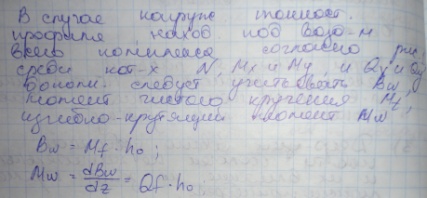 В случае нагруж. тонкост.
профиля, наход. под возд-м
всего комплекса согласно рис,
среди кот-х N, Mx и My, и Qx и Qy
дополн. следует учитывать Bw,
момент чистого кручения Mf,
изгибно-крутящий момент Mw
Bw = Mf · h₀ ;
Mw = dBw/dz = Qf · h₀